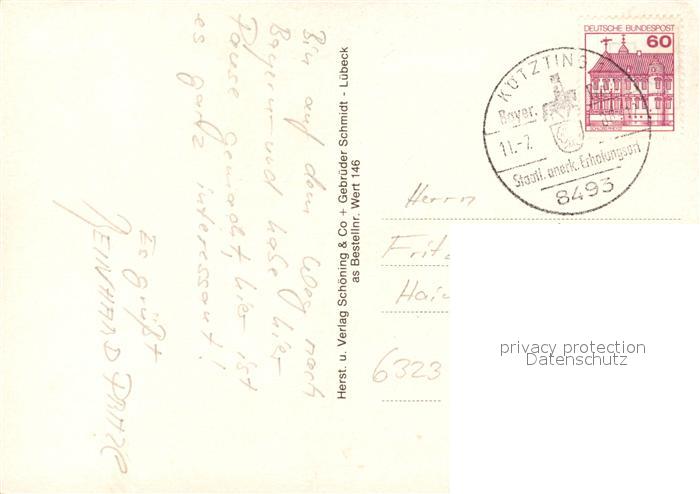 Bin auf dem Weg nach
Bayern und habe hier
Pause gemacht, hier ist
es ganz interessant!
Es grüßt
REINHARD
Herst. u. Verlag Schöning & Co + Gebrüder Schmidt - Lübeck
as Bestellnr. Wert 146
DEUTSCHE BUNDESPOST
60
SCHLOSS RHEYDT
KÖTZTING
Bayer.
11.-7.
Staatl. anerk. Erholungsort
8493
Herrn
Fritz
Hai
6323
privacy protection
by oldthing.de